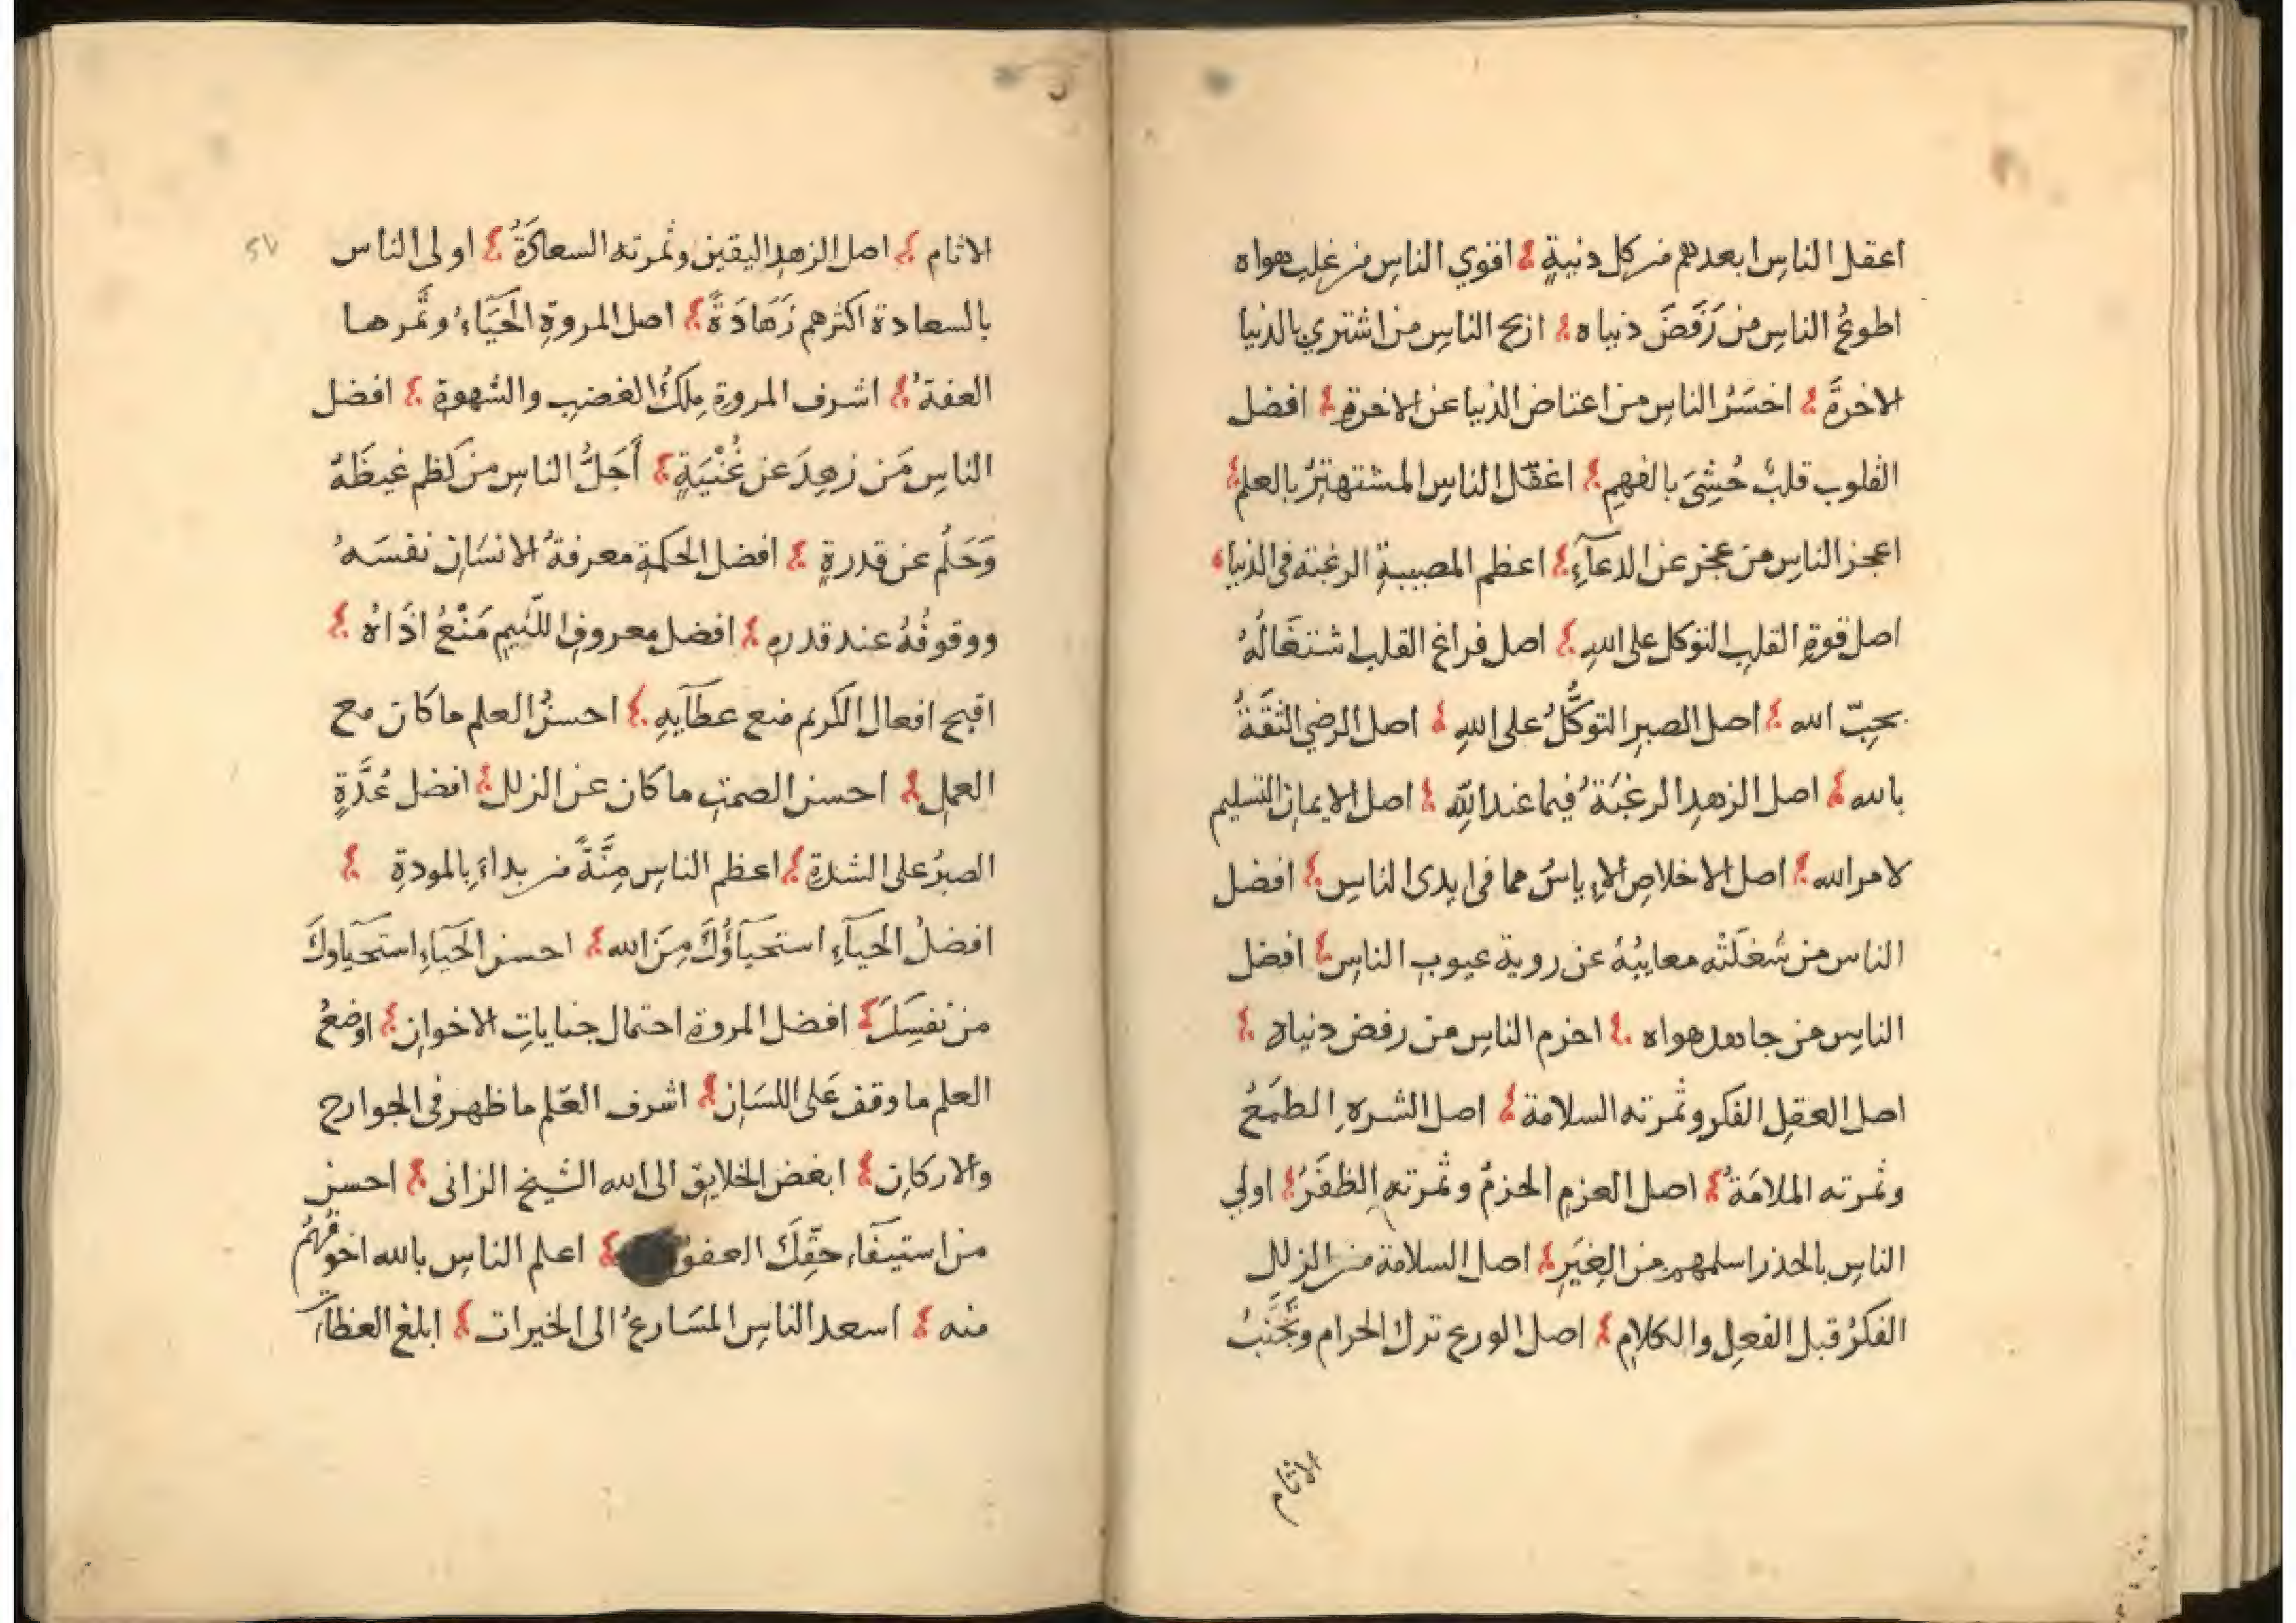 اعقل الناسِ ابعدهم من كلِ دنيةٍ اقوي الناسِ من غلب هواه
اطوعُ الناسِ من رَفَضَ دنياه اربح الناسِ من اشتري بالدنيا
الاخرةَ اخسَرُ الناسِ من اعتاض الدنيا عن الاخرةِ افضل
القلوب قلبٌ حُشِىَ بالفهمِ اغفَل الناسِ المشتهتِرُ بالعلم
اعجز الناسِ من عجز عن الدعآءِ اعظم المصيبةِ الرغبته فى الدنيا
اصل قوةِ القلبِ التوكل على اللهِ اصل فراغ القلب اشتغَالُهُ
بحبّ الله اصل الصبرِ التوكُّلُ على اللهِ اصل الرضي الثقَةُ
بالله اصل الزهدِ الرغبَةُ فيما عند اللهِ اصل الايمانِ التسليم
لامر الله اصل الاخلاصِ الاءِياسُ مما فى ايدى الناسِ افضل
الناس من شغَلَتْه معايبُهُ عن روية عيوبِ الناسِ افضل
الناسِ من جاهد هواه احزم الناسِ من رفض دنياه
اصل العقلِ الفكر وثمرته السلامة اصل الشرهِ الطمَعُ
وثمرته الملامَةُ اصل العزمِ الحزمُ وثمرته الظفَرُ اولي
الناسِ بالحذر اسلمهم من الغِيَرِ اصل السلامة من الزللِ
الفكرُ قبل الفعلِ والكلامِ اصل الورع ترك الحرام وتَجَنُّبُ
الاثام
الاثام اصل الزهدِ اليقين وثمرته السعادَةُ اولى الناس
بالسعادة اكثرهم زَهَادَةً اصل المروةِ الحَيَاءُ وثَمرها
العفةُ اشرف المروةِ مِلكُ الغضبِ والشهوةِ افضل
الناسِ مَن زهِدَ عن غُنْيَةٍ أَجَلُّ الناسِ من كظم غيظَهُ
وَحَلُم عن قدرةٍ افضل الحكمةِ معرفةُ الانسَانِ نفسَهُ
ووقوفُهُ عند قدرهِ افضل معروفِ اللّئيمِ مَنْعُ اذَاهُ
اقبح افعال الكريم منع عطآيهِ احسنُ العلم ما كان مع
العملِ احسن الصمتِ ما كان عن الزلل افضل عُدَّةٍ
الصبرُ على الشدةِ اعظم الناسِ مِنَّةً من بداءَ بِالمودةِ
افضلُ الحيآءِ استحيآؤُكَ مِنَ الله احسن الحَيَاءِ استحيَاوكَ
من نفسِكَ افضل المروةِ احتمال جناياتِ الاخوانِ اوضعُ
العلم ما وقف عَلى اللسَانِ اشرف العّلم ما ظهر فى الجوارح
والاركانِ ابغض الخلايقِ الى الله الشيخ الزانى احسن
من استيفَآءِ حقِّكَ العفوُ اعلم الناسِ بالله اخوفُهُم
منه اسعد الناسِ المسَارعُ الى الخيرات ابلغ العظآت